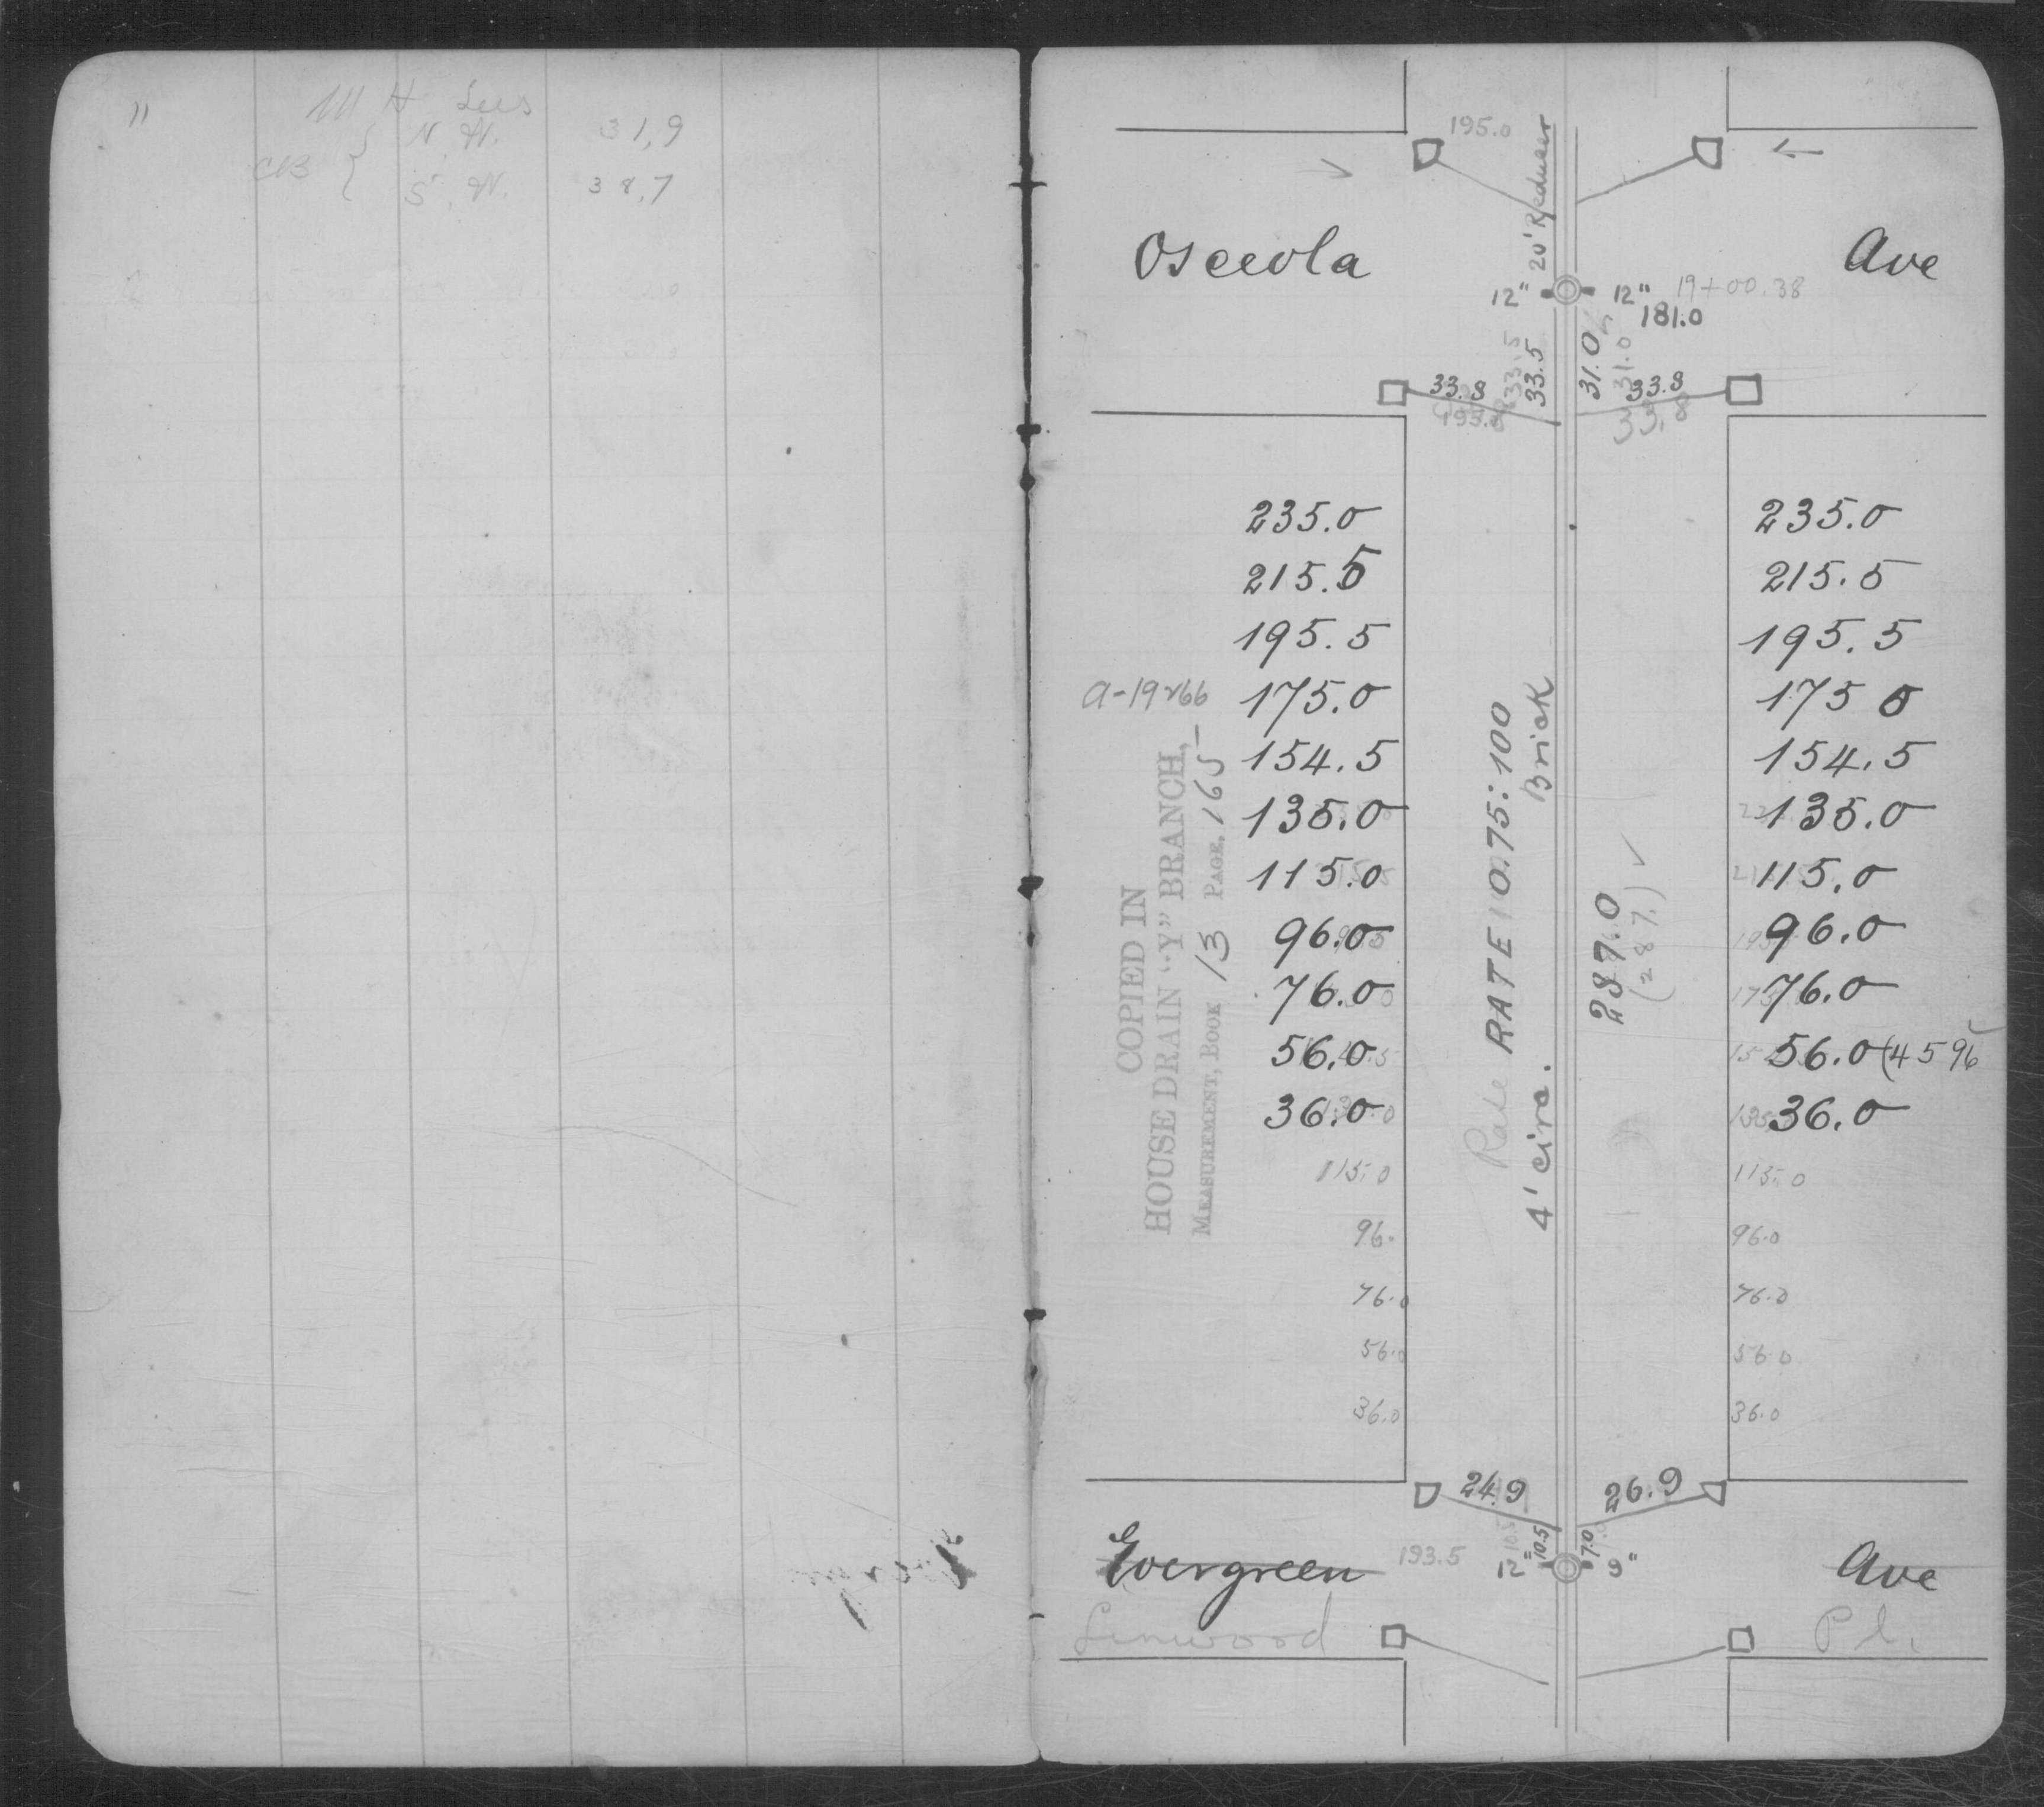 11
M H Lees
N. W. 31,9
CB {
S. W. 38,7
195.0
20' Reducer
Osceola Ave
12" 12" 19+00.38
181.0
33.5 33.5 31.0 31.0
33.8 33.8
193. 33.8
235.0 235.0
215.5 215.5
195.5 195.5
a-19266 175.0 175 0
154.5 154.5
135.0 135.0
115.0 115.0
96.0 96.0
76.0 76.0
56.0 56.0 (4596
36.0 36.0
COPIED IN
HOUSE DRAIN "Y" BRANCH,
MEASUREMENT, BOOK 13 PAGE, 165
Rate RATE 0.75:100
4' circ. Brick
287.0
(287.) ✓
115.0 115.0
96. 96.0
76.0 76.0
56.0 56.0
36.0 36.0
24.9 26.9
10.5 10.5 7.0
Evergreen 193.5 12" 9" Ave
Linwood Pl.